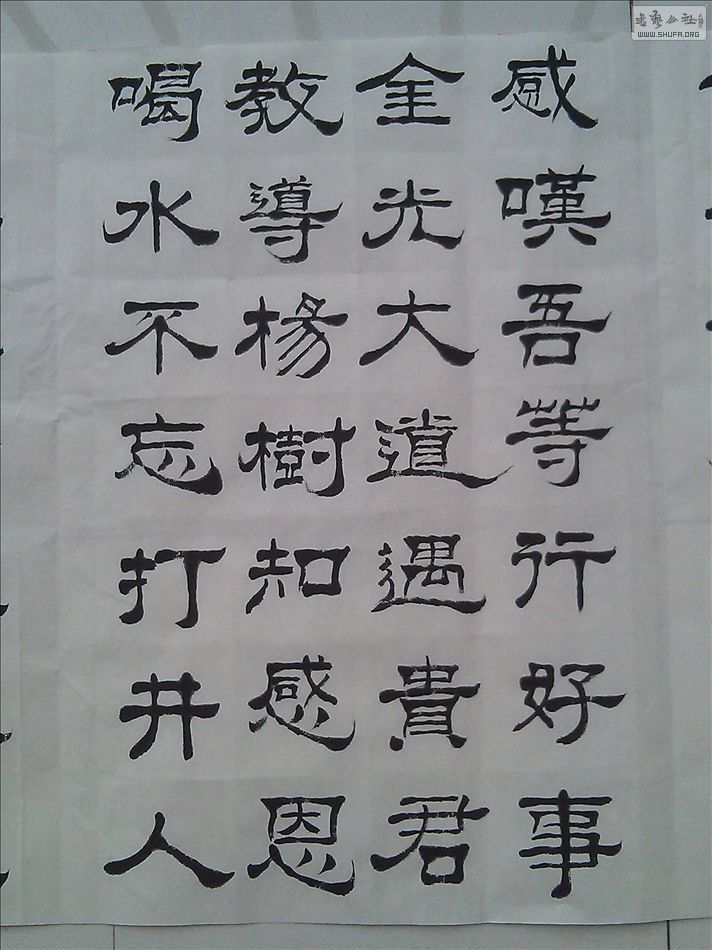 感嘆吾等行好事
金光大道遇貴君
教導楊樹知感恩
喝水不忘打井人
书艺公社
WWW.SHUFA.ORG